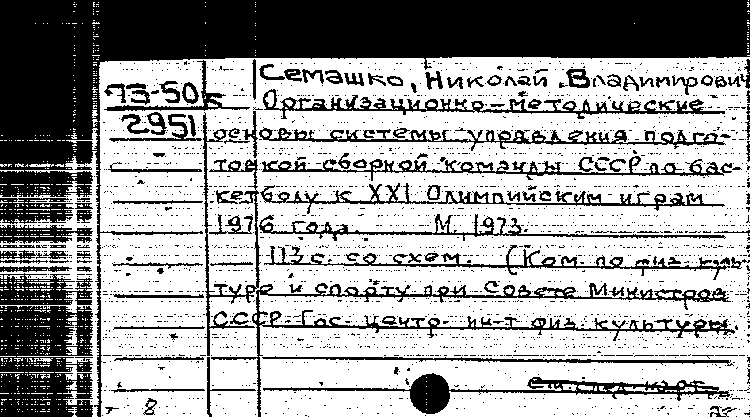 Семашко, Николай Владимирович
73-50к Организационно-методические
2951 основы системы управления подго-
товкой сборной команды СССР по бас-
кетболу к XXI Олимпийским играм
1976 года. М., 1973.
113 с. со схем. (Ком. по физ. куль-
туре и спорту при Совете Министров
СССР. Гос. центр. ин-т физ. культуры.
см. след. карт.
8